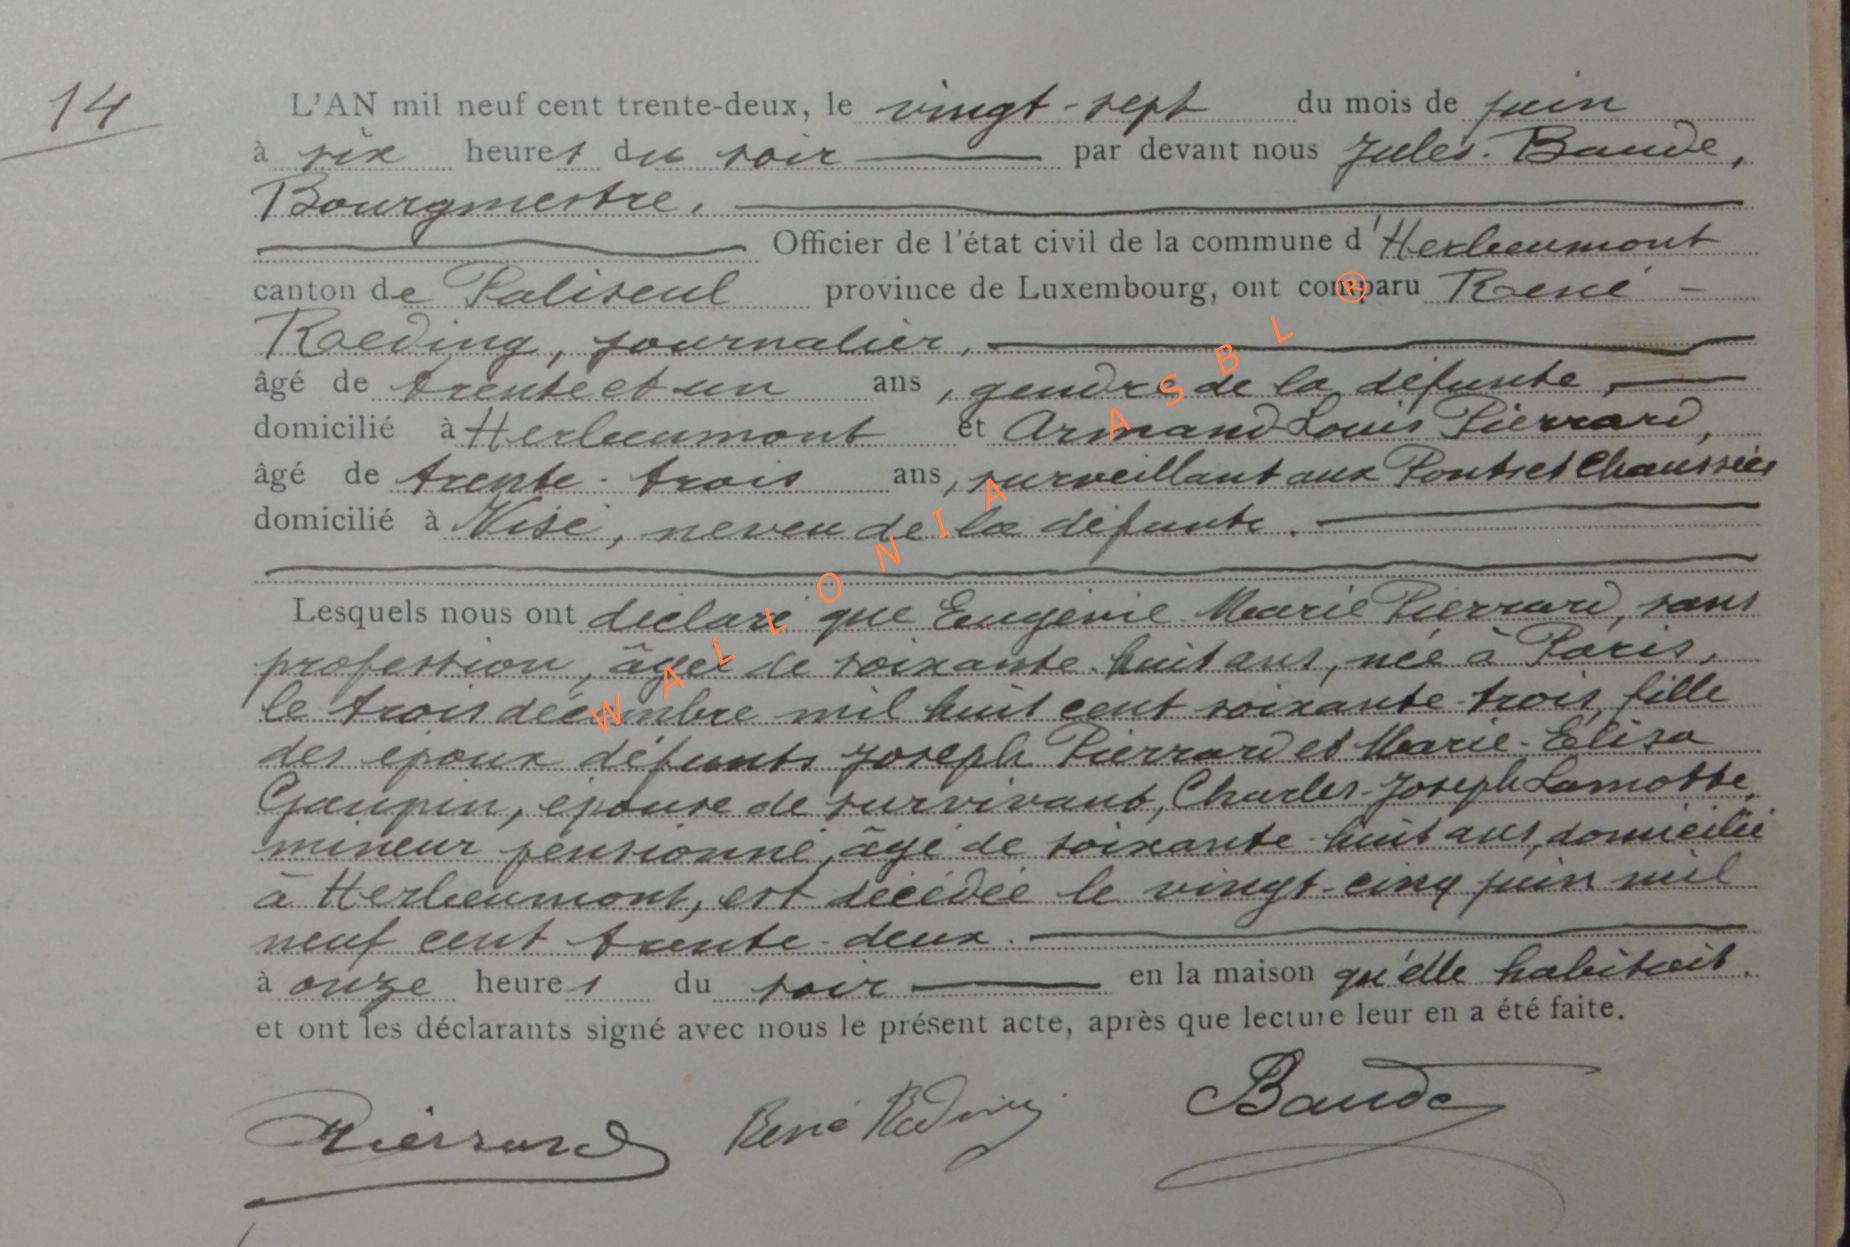 14
L'AN mil neuf cent trente-deux, le vingt-sept du mois de juin
à six heures du soir par devant nous Jules Baude,
Bourgmestre,
Officier de l'état civil de la commune d'Herbeumont
canton de Paliseul province de Luxembourg, ont comparu René
Roeding, journalier,
âgé de trente et un ans, gendre de la défunte,
domicilié à Herbeumont et Armand Louis Pierrard,
âgé de trente-trois ans, surveillant aux Ponts et Chaussées
domicilié à Visé, neveu de la défunte.
Lesquels nous ont déclaré que Eugénie Marie Pierrard, sans
profession, âgée de soixante-huit ans, née à Paris,
le trois décembre mil huit cent soixante-trois, fille
des époux défunts Joseph Pierrard et Marie-Élisa
Gaupin, épouse de survivant, Charles-Joseph Lamotte,
mineur pensionné, âgé de soixante-huit ans, domicilié
à Herbeumont, est décédée le vingt-cinq juin mil
neuf cent trente-deux.
à onze heures du soir en la maison qu'elle habitait.
et ont les déclarants signé avec nous le présent acte, après que lecture leur en a été faite.
Pierrard René Roeding Baude
WALLONIA ASBL ®